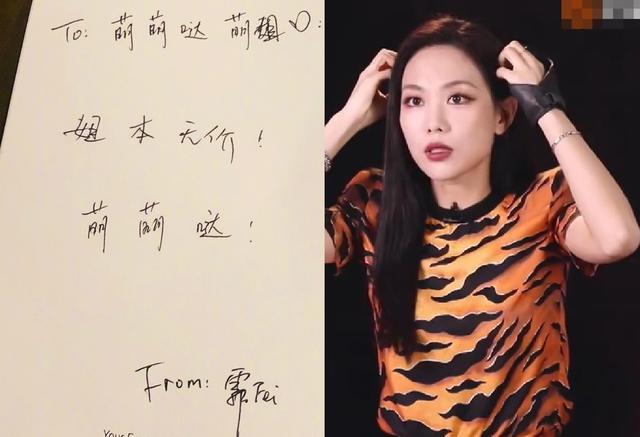 To: 萌萌哒 萌♡:
姐本无价!
萌萌哒!
From: 霏Fei